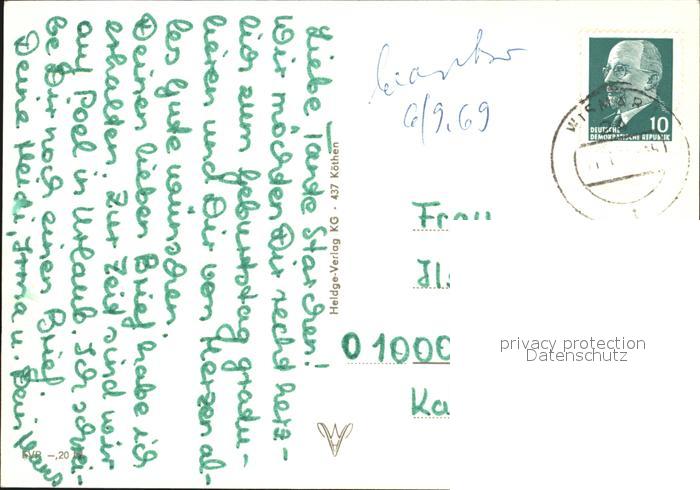 Liebe Tante Starchen!
Wir möchten Dir recht herz-
lich zum Geburtstag gratu-
lieren und Dir von Herzen al-
les Gute wünschen.
Deinen lieben Brief habe ich
erhalten. Zur Zeit sind wir
auf Poel in Urlaub. Ich schrei-
be Dir noch einen Brief.
Deine Heidi, Irma u. Dein Hans
EVP -,20 M
Heldge-Verlag KG · 437 Köthen
6/9.69
WISMAR
10
DEUTSCHE
DEMOKRATISCHE REPUBLIK
Frau
Ils
01000
Ka
privacy protection
Datenschutz